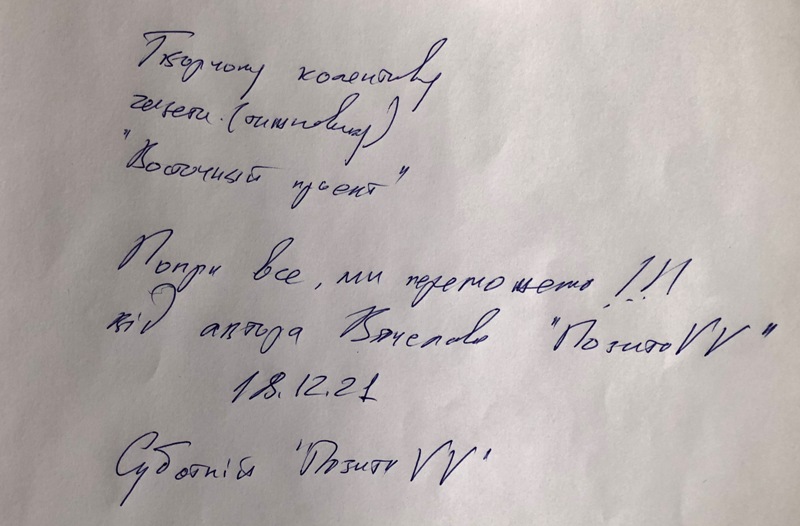 Творчому колективу
газети (тижневику)
"Восточный проект"
Попри все, ми переможемо!!!
від автора Вячеслава "ПозитиVV"
18.12.21
Суботній "ПозитиVV"